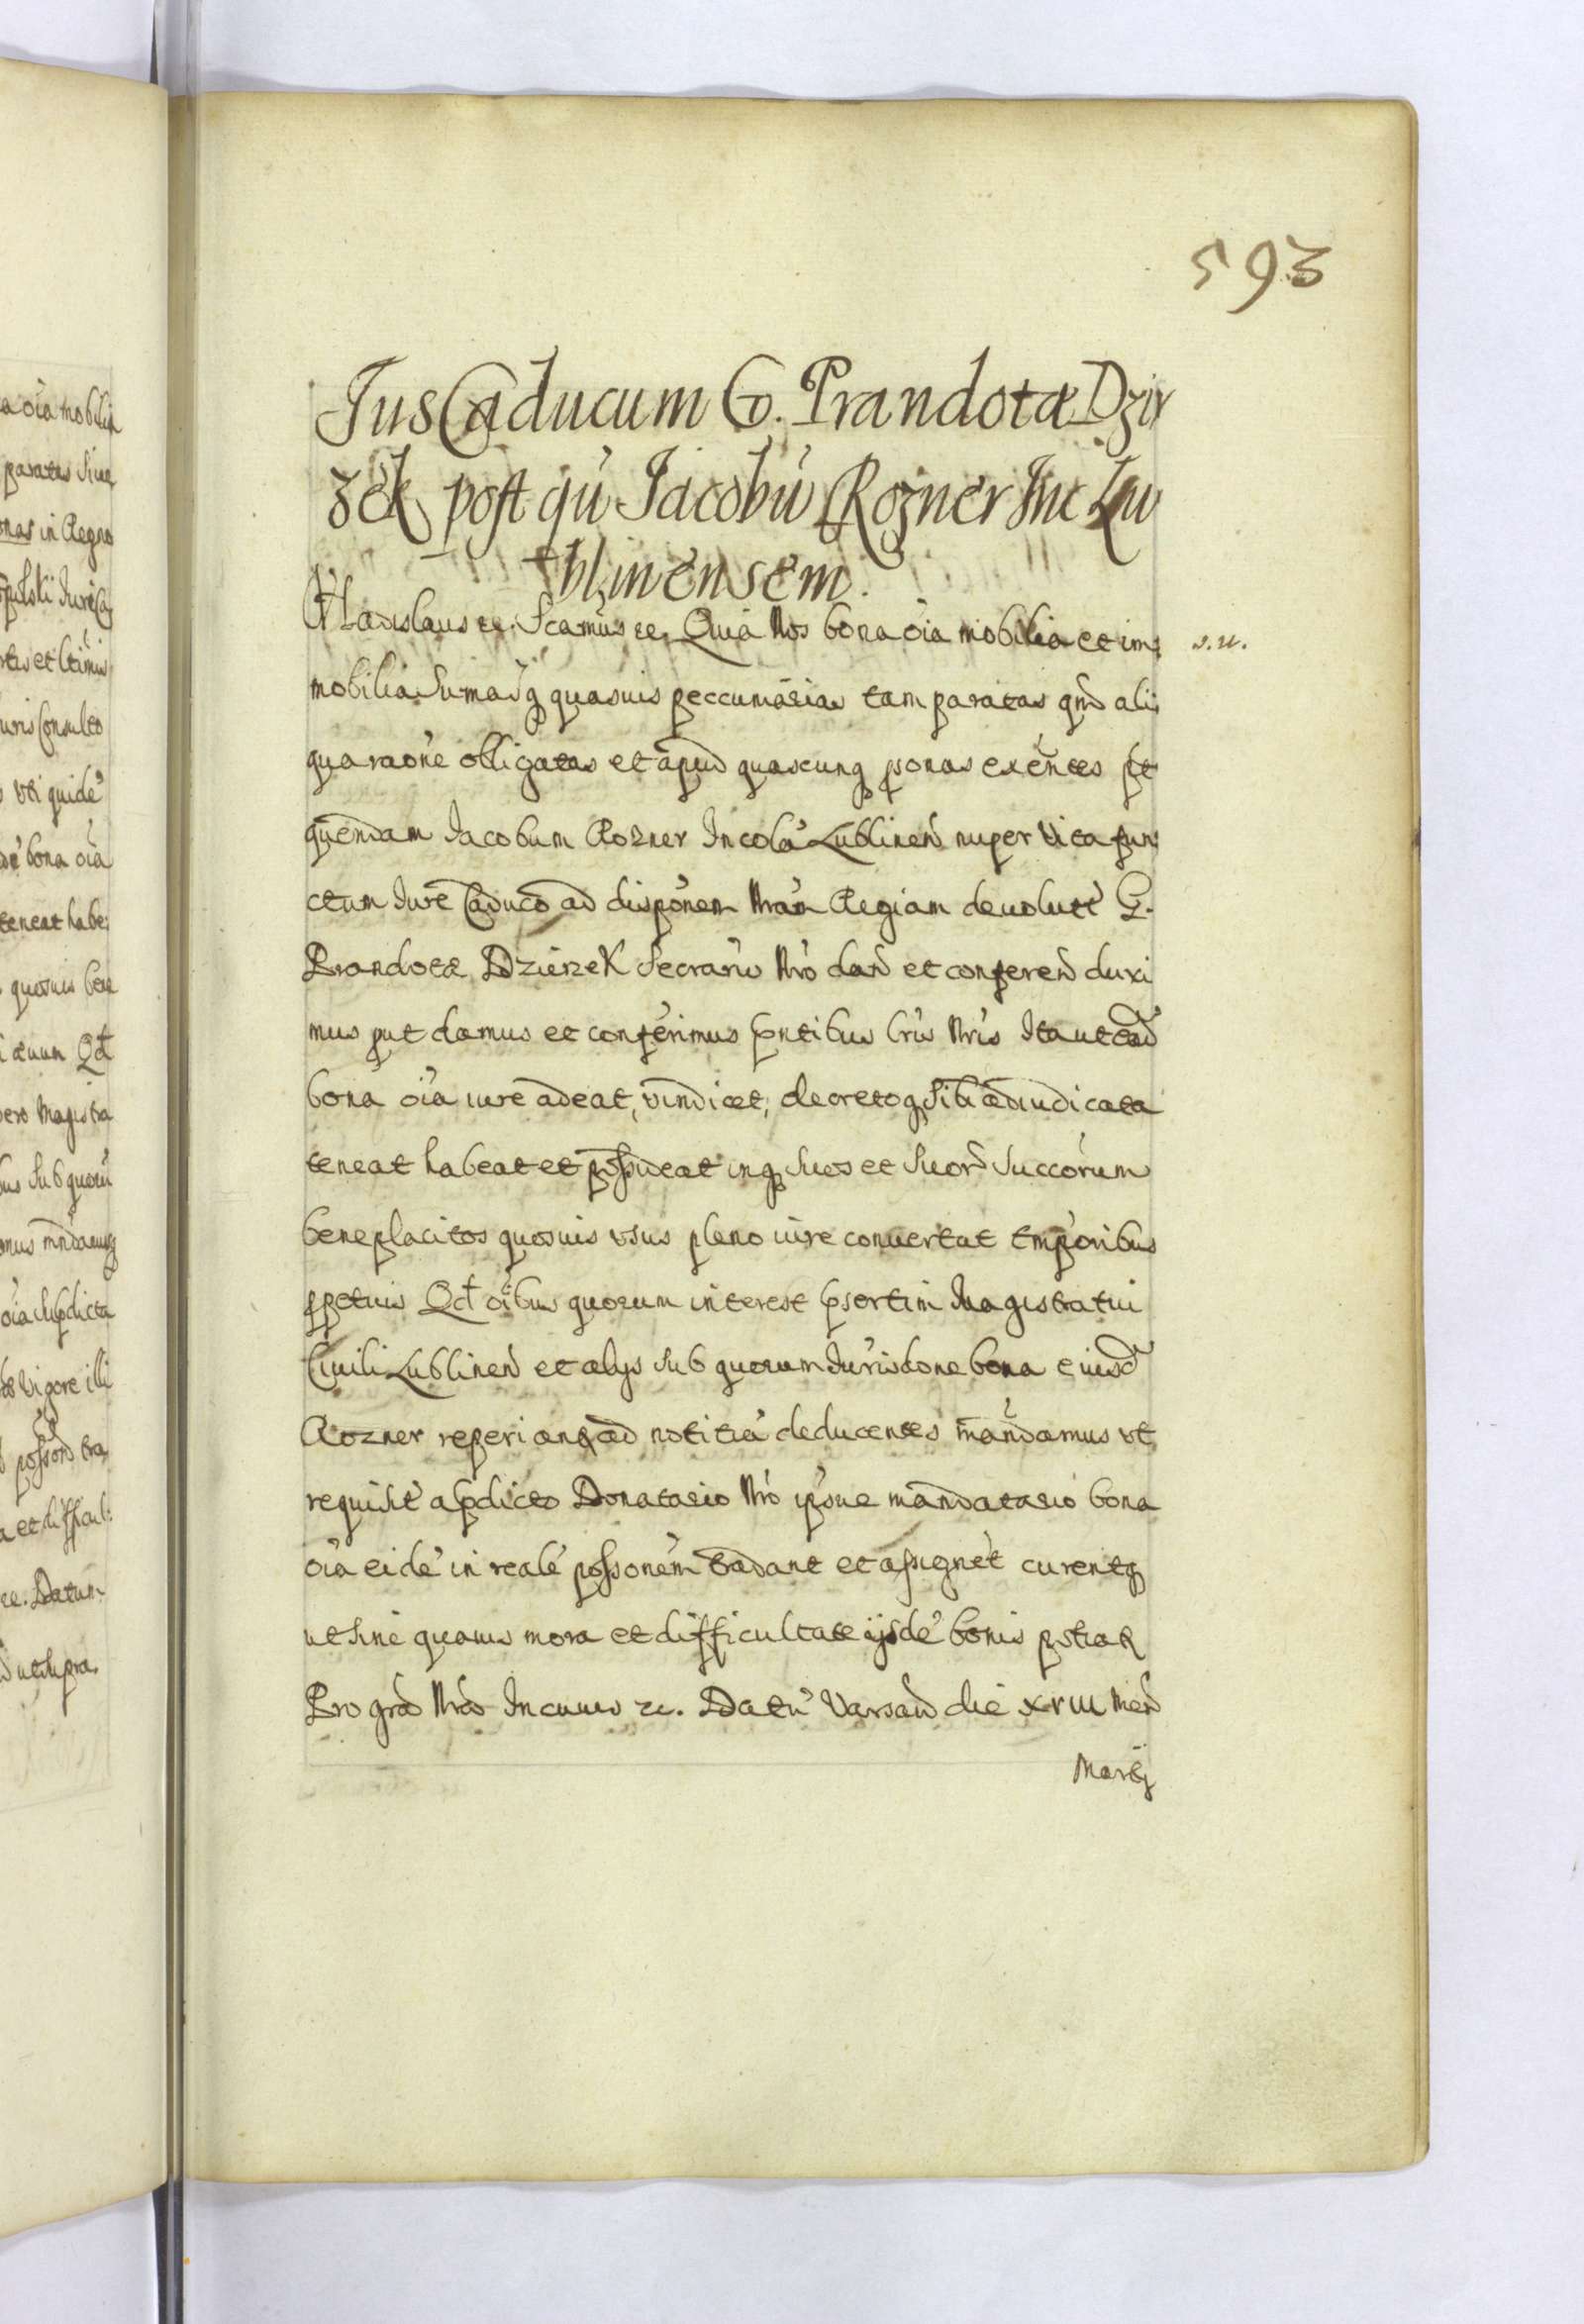 593
Jus Caducum G. Prandotæ Dzir
zek post qu̕ Jacobu̕ Rozner Inc Lu
blinensem.
Vladislaus etc. Scamus etc. Quia Nos bona oi̕a mobilia et im:
s. n.
mobilia Su̅masq̨ quasuis peccuniarias tam paratas qm̕ ali:
qua rao̕ne obligatas et apud quascunq̨ p̱onas exen̄tes pt
quendam Jacobum Rozner Incola̕ Lublinen̄ nuper vita fun
ctum Jure Caduco ad dispo̕nem Nra̕m Regiam deuolut̕ G.
Prandotæ Dzierzek Secrari̕o Nro̕ dan̄ et conferen̄ duxi
mus put damus et conferimus p̄ntibus lris̕ Nris̕ Ita ut ead̄
bona oi̕a iure adeat, vindicet, decretoq̨ Sibi adiudicata
teneat habeat et possideat inq̨ Suos et Suor̄ Succorum
beneplacitos quosuis vsus pleno iure conuertat tmp̕oribus
p̱petuis Qd̄ oi̕bus quorum interest p̄sertim Magistratui
Ciuili Lublinen̄ et alijs sub quorum Jurisdo̕ne bona eiusd̄
Rozner reperiant̨ ad notitia̕ deducentes mandamus vt
requisit̕ a p̄dicto Donatario Nro̕ ip̕siue mandatario bona
oi̕a eide̕ in reale̕ posson̕em tradant et assignet̕ curentq̨
ut sine quauis mora et difficultate ijsde̕ bonis potiat̨
Pro gra̕ Nra̕ In cuius etc. Datu̕ Varsau̅ die xviii Men̄
Martij